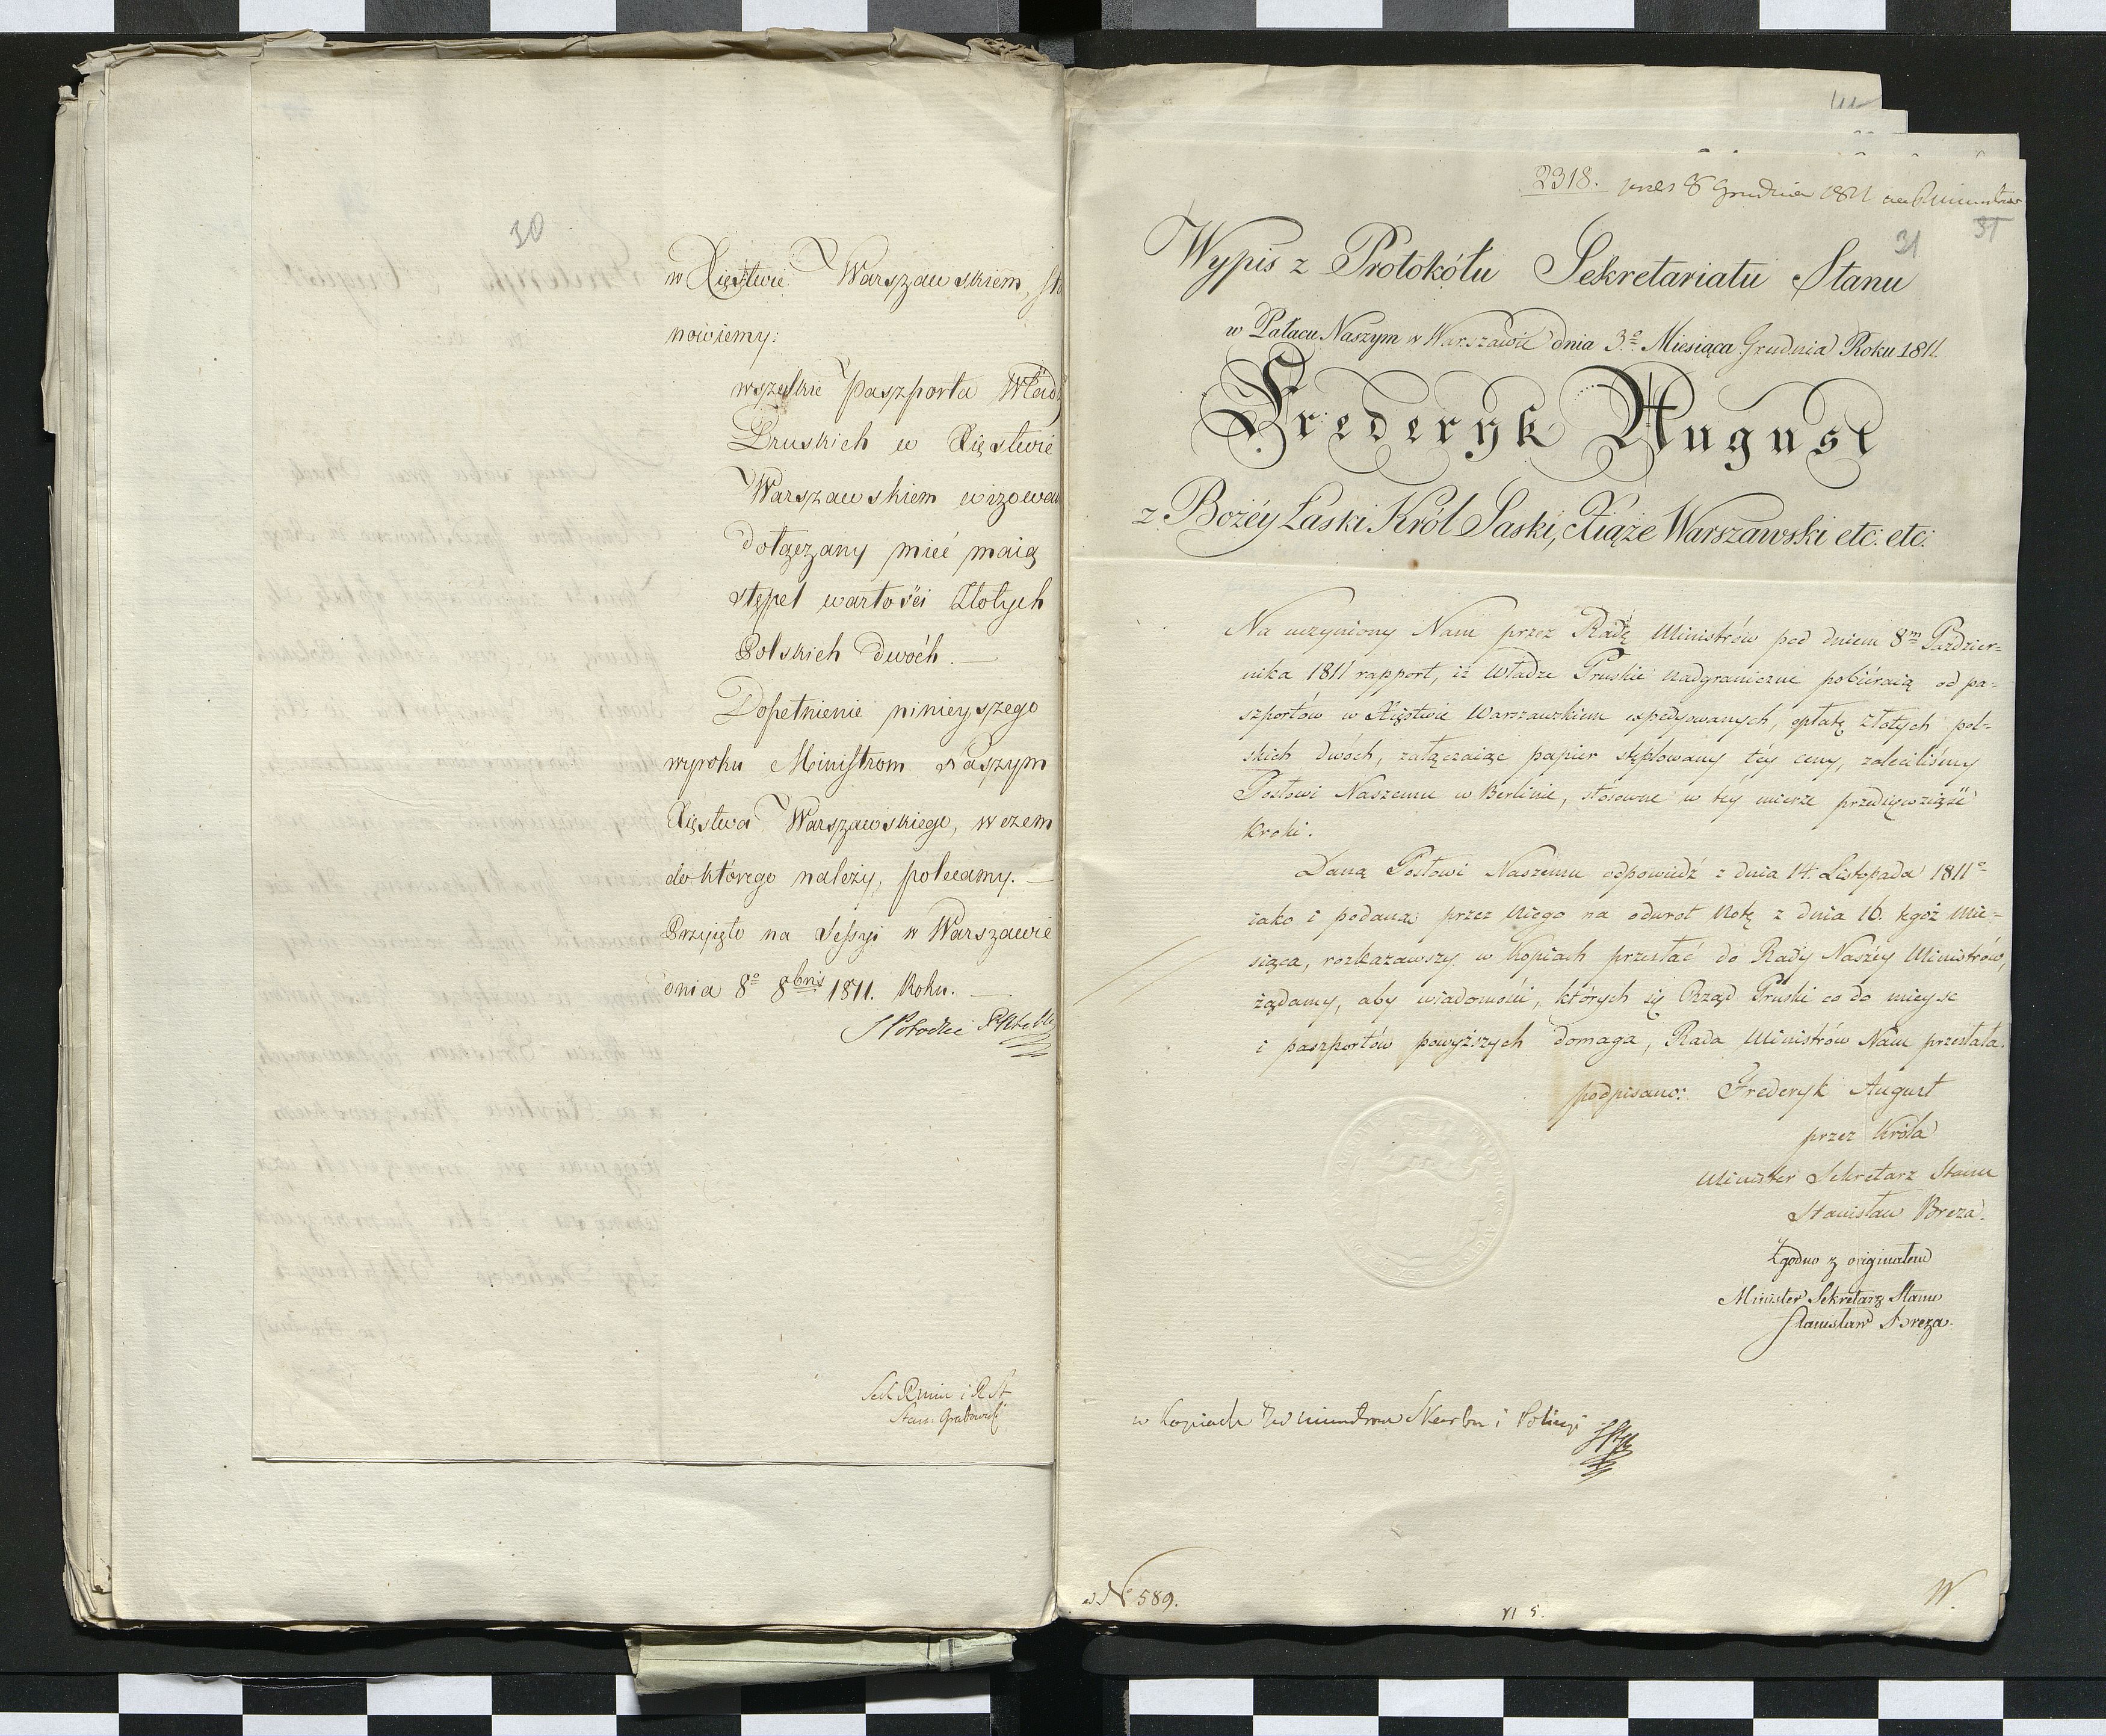 30
w Xięstwie Warszawskiem, sta
nowiemy:
wszelkie paszporta Wład
Pruskich w Xięstwie
Warszawskiem wizowa
dołączany mieć maią
stępel wartości Złotych
Polskich dwóch. —
Dopełnienie ninieyszego
wyroku Ministrom Naszym
Xięstwa Warszawskiego, w czem
do którego należy, polecamy. —
Przyięto na Sessyi w Warszawie
dnia 8º 8bris 1811. Roku. —
S Potocki
Sek R Min i R St
Stan: Grabowski
2318. pres 8 Grudnia 1811
31
31
Wypis z Protokółu Sekretariatu Stanu
w Pałacu Naszym w Warszawie dnia 3º Miesiąca Grudnia Roku 1811
Frederyk August
z Bożéy Łaski Król Saski, Xiąże Warszawski etc. etc.
Na uczyniony Nam przez Radę Ministrów pod dniem 8m Paździer=
nika 1811 rapport, iż Władze Pruskie nadgraniczne pobieraią od pa=
szportów w Xięstwie Warszawskiem expedyowanych, opłatę złotych pol=
skich dwóch, załączaiąc papier stęplowany téy ceny, zaleciliśmy
Posłowi Naszemu w Berlinie, stósowne w téy mierze przedsięwziąść
kroki.
Daną Posłowi Naszemu odpowiedź z dnia 14. Listopada 1811º
iako i podaną przez niego na odwrot Notę z dnia 16. tegoż Mie=
siąca, rozkazawszy w Kopiach przesłać do Rady Naszéy Ministrów,
żądamy, aby wiadomości, których się Rząd Pruski co do mieysc
i paszportów powyższych domaga, Rada Ministrów Nam przesłała.
podpisano: Frederyk August
przez Króla
Minister Sekretarz Stanu
Stanisław Breza.
Zgodno z originałem
Minister Sekretarz Stanu
Stanisław Breza.
w kopiach Ministrom Skarbu i Policyi
ad Nº 589.
VI 5.
W.